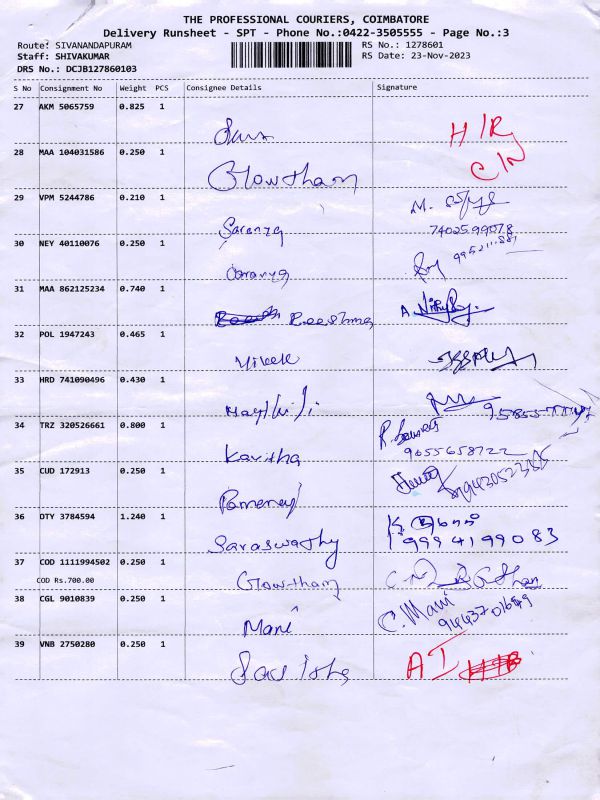 THE PROFESSIONAL COURIERS, COIMBATORE
Delivery Runsheet - SPT - Phone No.:0422-3505555 - Page No.:3
Route: SIVANANDAPURAM RS No.: 1278601
Staff: SHIVAKUMAR RS Date: 23-Nov-2023
DRS No.: DCJB127860103
S No Consignment No Weight PCS Consignee Details Signature
27 AKM 5065759 0.825 1
H/R
28 MAA 104031586 0.250 1
Gowtham C/N
29 VPM 5244786 0.210 1
M.
Saranya 7402599078
30 NEY 40110076 0.250 1
Saranya
31 MAA 862125234 0.740 1
Reeshma A.
32 POL 1947243 0.465 1
Vivek
33 HRD 741090496 0.430 1
34 TRZ 320526661 0.800 1
R.
Kavitha 9655658722
35 CUD 172913 0.250 1
36 DTY 3784594 1.240 1
Saraswathy 9994199083
37 COD 1111994502 0.250 1
COD Rs.700.00
Gowtham
38 CGL 9010839 0.250 1
C. Mani
Mani
39 VNB 2750280 0.250 1
AI H/R